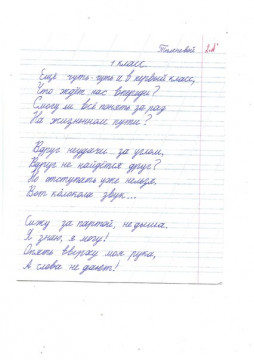 2 "А"
1 класс.
Ещё чуть-чуть и в первый класс,
Что ждёт нас впереди?
Смогу ли всё понять за раз
На жизненном пути?
Вдруг неудачи за углом,
Вдруг не найдётся друг?
Но отступать уже нельзя,
Вот колокола звук...
Сижу за партой, не дыша.
Я знаю, я могу!
Опять вверху моя рука,
А слова не дают!